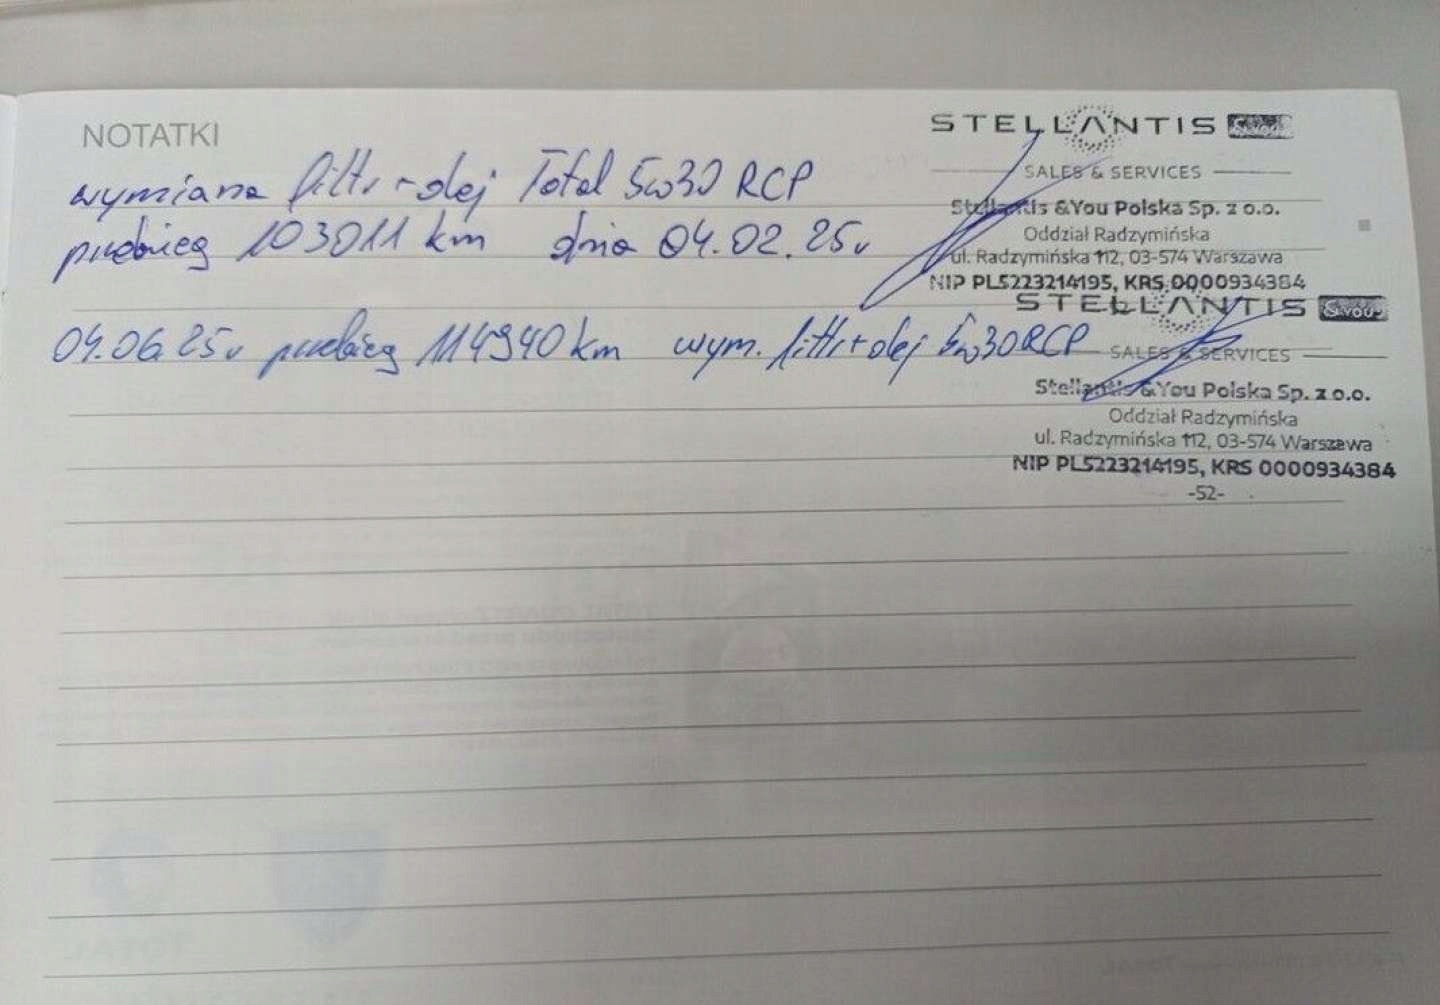 NOTATKI
wymiana filtr + olej Total 5w30 RCP
przebieg 103011 km dnia 04.02.25r
STELLANTIS &YOU
SALES & SERVICES
Stellantis &You Polska Sp. z o.o.
Oddział Radzymińska
ul. Radzymińska 112, 03-574 Warszawa
NIP PL5223214195, KRS 0000934384
04.06.25r przebieg 114940 km wym. filtr + olej 5w30 RCP
STELLANTIS &YOU
SALES & SERVICES
Stellantis &You Polska Sp. z o.o.
Oddział Radzymińska
ul. Radzymińska 112, 03-574 Warszawa
NIP PL5223214195, KRS 0000934384
-52-